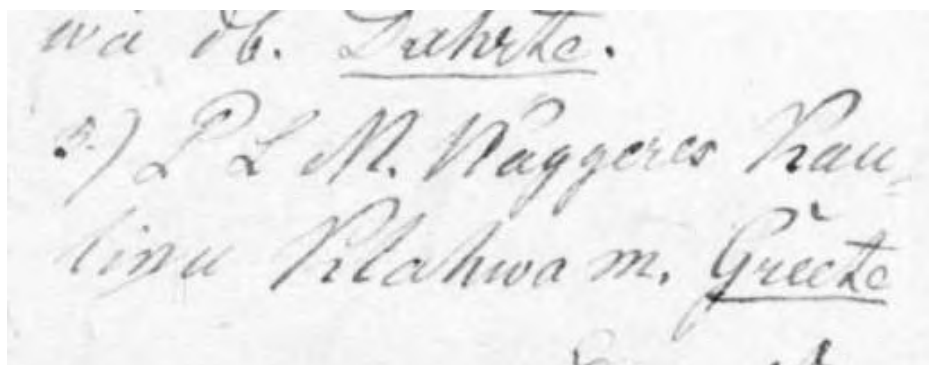 wa db. Dahrte.
2.) P L M. Waggeres Kau-
linu Klahwa m. Greete